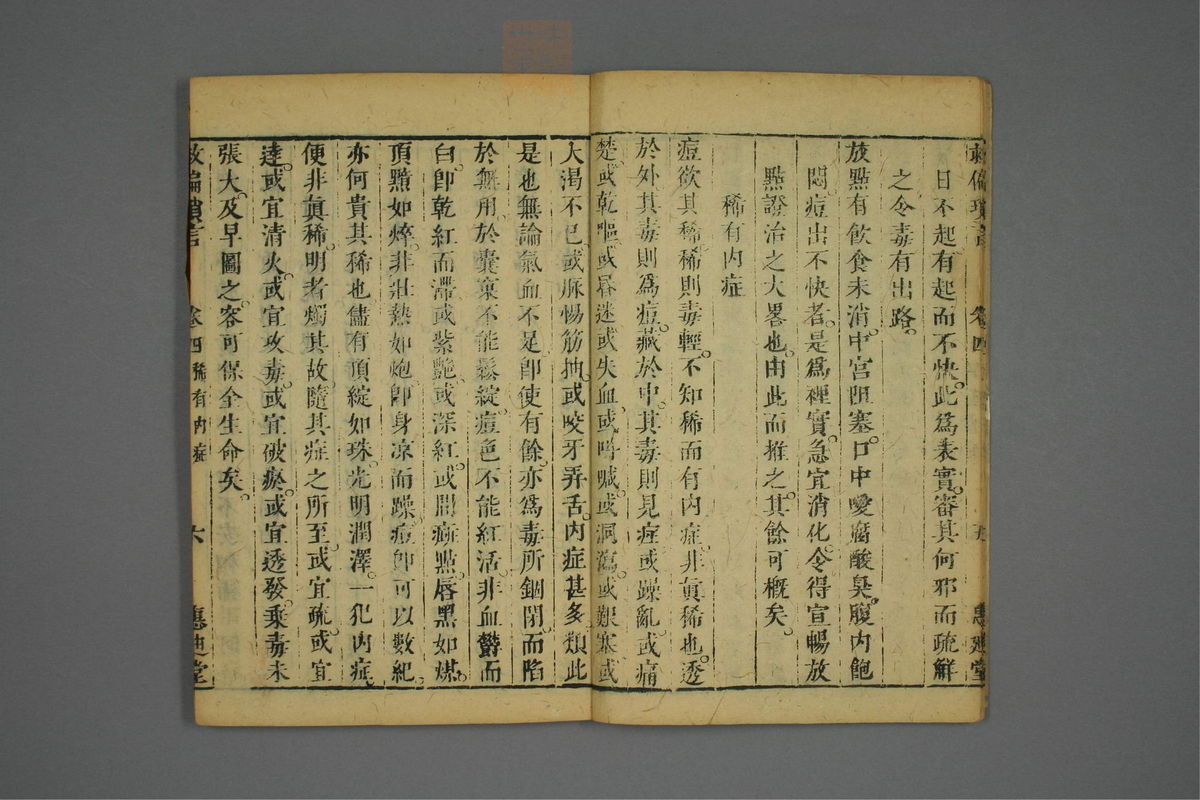 救偏瑣言 卷四 五 惠迪堂
日不起有起而不快此爲表實審其何邪而疏解
之令毒有出路
放點有飲食未消中宮阻塞口中噯腐酸臭腹内飽
悶痘出不快者是爲裡實急宜消化令得宣暢放
點證治之大畧也由此而推之其餘可概矣
稀有内症
痘欲其稀稀則毒輕不知稀而有内症非眞稀也透
於外其毒則爲痘藏於中其毒則見症或躁亂或痛
楚或乾嘔或昏迷或失血或呌喊或洞瀉或艱塞或
大渴不已或脈惕筋抽或咬牙弄舌内症甚多類此
是也無論氣血不足卽使有餘亦爲毒所錮閉而陷
於無用於囊窠不能鬆綻痘色不能紅活非血欝而
白卽乾紅而滯或紫艷或深紅或間瘀點唇黑如煤
頂黯如焠非壯熱如炮卽身凉而躁痘卽可以數紀
亦何貴其稀也儘有頂綻如珠光明潤澤一犯内症
便非眞稀明者燭其故隨其症之所至或宜疏或宜
達或宜清火或宜攻毒或宜破瘀或宜透發乘毒未
張大及早圖之客可保全生命矣
救偏瑣言 卷四 稀有内症 六 惠迪堂